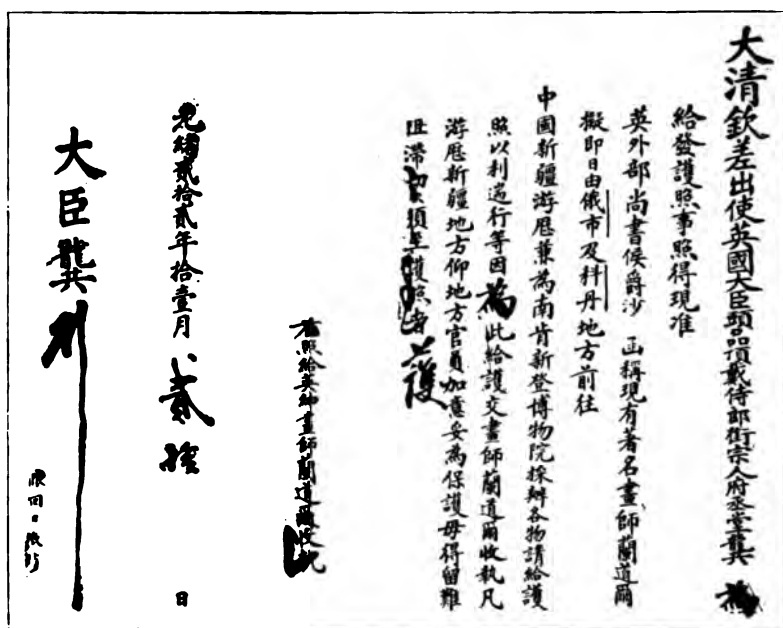 大清欽差出使英國大臣頭品頂戴侍郎銜宗人府丞堂龔 為
給發護照事照得現准
英外部尚書侯爵沙 函稱現有著名畫師蘭道爾
擬即日由俄市及科丹地方前往
中國新疆游歷兼為南肯新登博物院採辦各物請給護
照以利遄行等因為此給護交畫師蘭道爾收執凡
游歷新疆地方仰地方官員加意妥為保護毋得留難
阻滯切須至護照者 護
右照給英紳畫師蘭道爾收執
光緒貳拾貳年拾壹月 貳拾 日
大臣龔
限回日繳銷